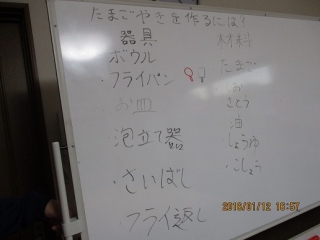 たまごやきを作るには!
器具
ボウル
・フライパン
お皿
泡立て器
・さいばし
・フライ返し
材料
たまご
お
さとう
油
しょうゆ
・こしょう
2016/01/12 16:57